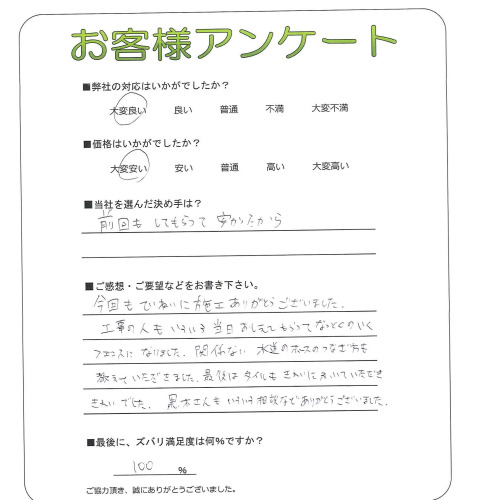 お客様アンケート
■弊社の対応はいかがでしたか？
大変良い 良い 普通 不満 大変不満
■価格はいかがでしたか？
大変安い 安い 普通 高い 大変高い
■当社を選んだ決め手は？
前回も してもらって 安かったから
■ご感想・ご要望などをお書き下さい。
今回も ていねいに 施工 ありがとうございました。
工事の人も いろいろ 当日 おしえて もらって なっとくのいく
フェンスに なりました。 関係ない 水道の ホースの つなぎ方も
教えて いただきました。 最後は タイルも きれいに ふいて いただき
きれいでした。 黒木さんも いろいろ 相談など ありがとうございました。
■最後に、ズバリ満足度は何％ですか？
100 %
ご協力頂き、誠にありがとうございました。